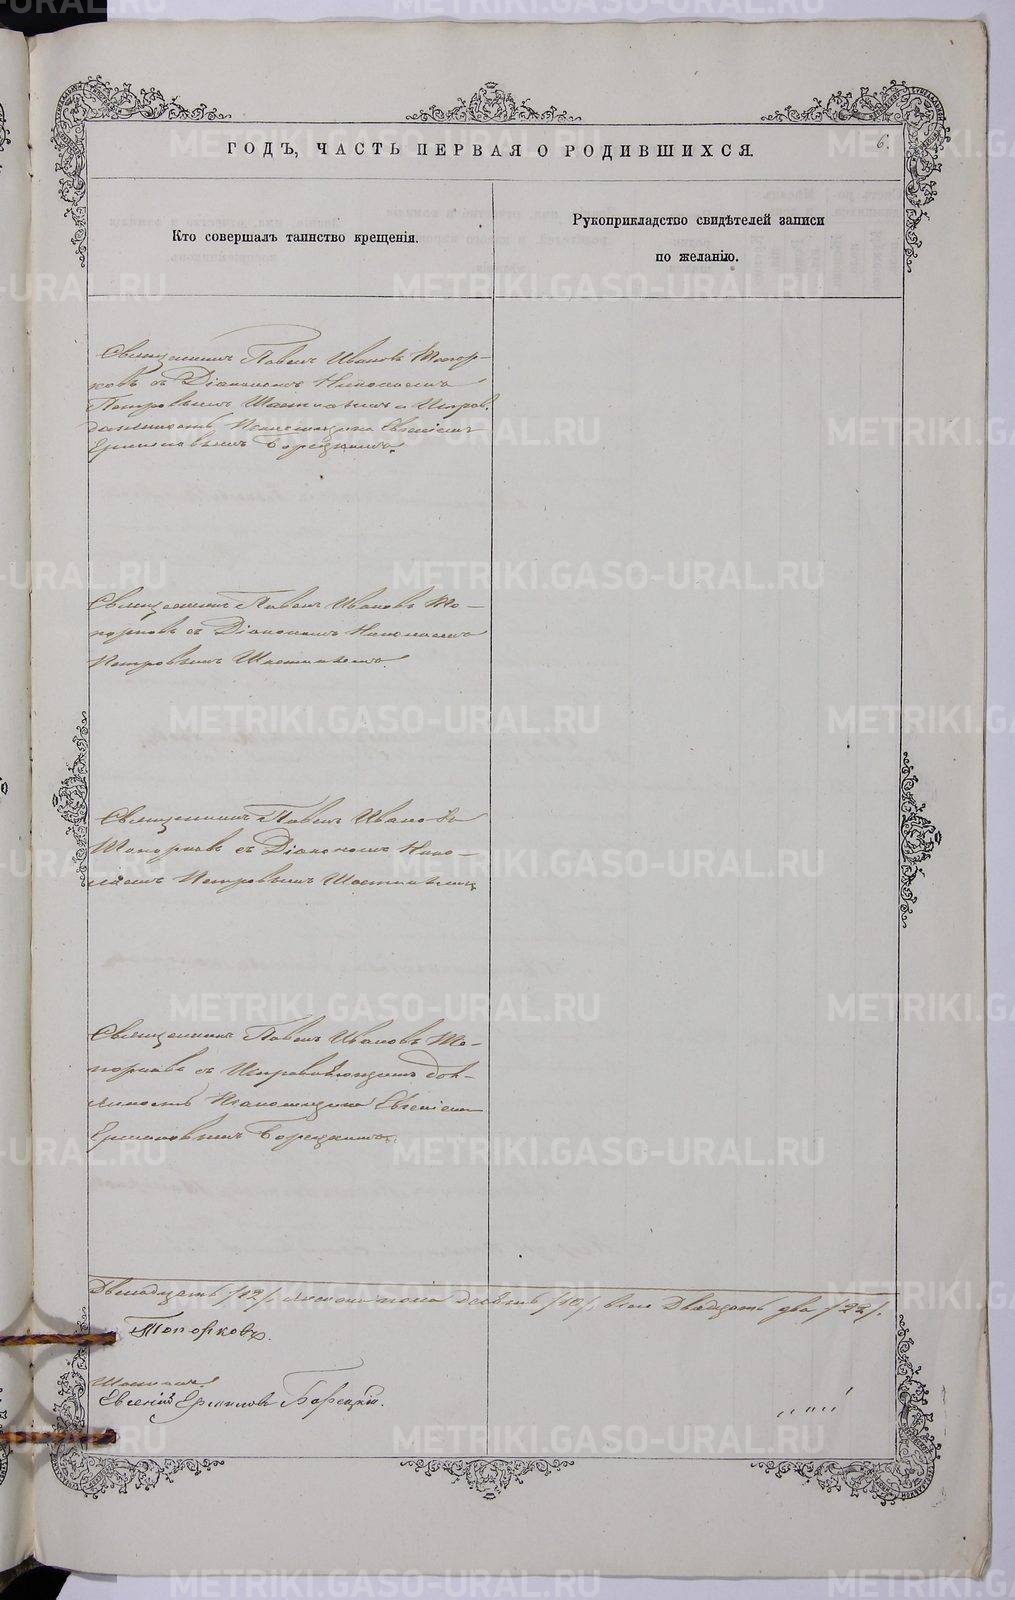 6.
ГОДЪ, ЧАСТЬ ПЕРВАЯ О РОДИВШИХСЯ.
Кто совершалъ таинство крещенія.
Рукоприкладство свидѣтелей записи
по желанію.
Священникъ Павелъ Ивановъ Топор-
ковъ съ Діакономъ Николаемъ
Петровымъ и Исправ.
должность Псаломщика Евгеніемъ
Ермиловымъ Борецкимъ.
Священникъ Павелъ Ивановъ То-
порковъ съ Діакономъ Николаемъ
Петровымъ
Священникъ Павелъ Ивановъ
Топорковъ съ Діакономъ Нико-
лаемъ Петровымъ
Священникъ Павелъ Ивановъ То-
порковъ съ Исправляющимъ дол-
жность Псаломщика Евгеніемъ
Ермиловымъ Борецкимъ.
Двенадцать /12/ женска пола десять /10/, всего Двадцать два /22/.
Топорковъ.
Евгеній Ермиловъ Борецкій.
METRIKI.GASO-URAL.RU